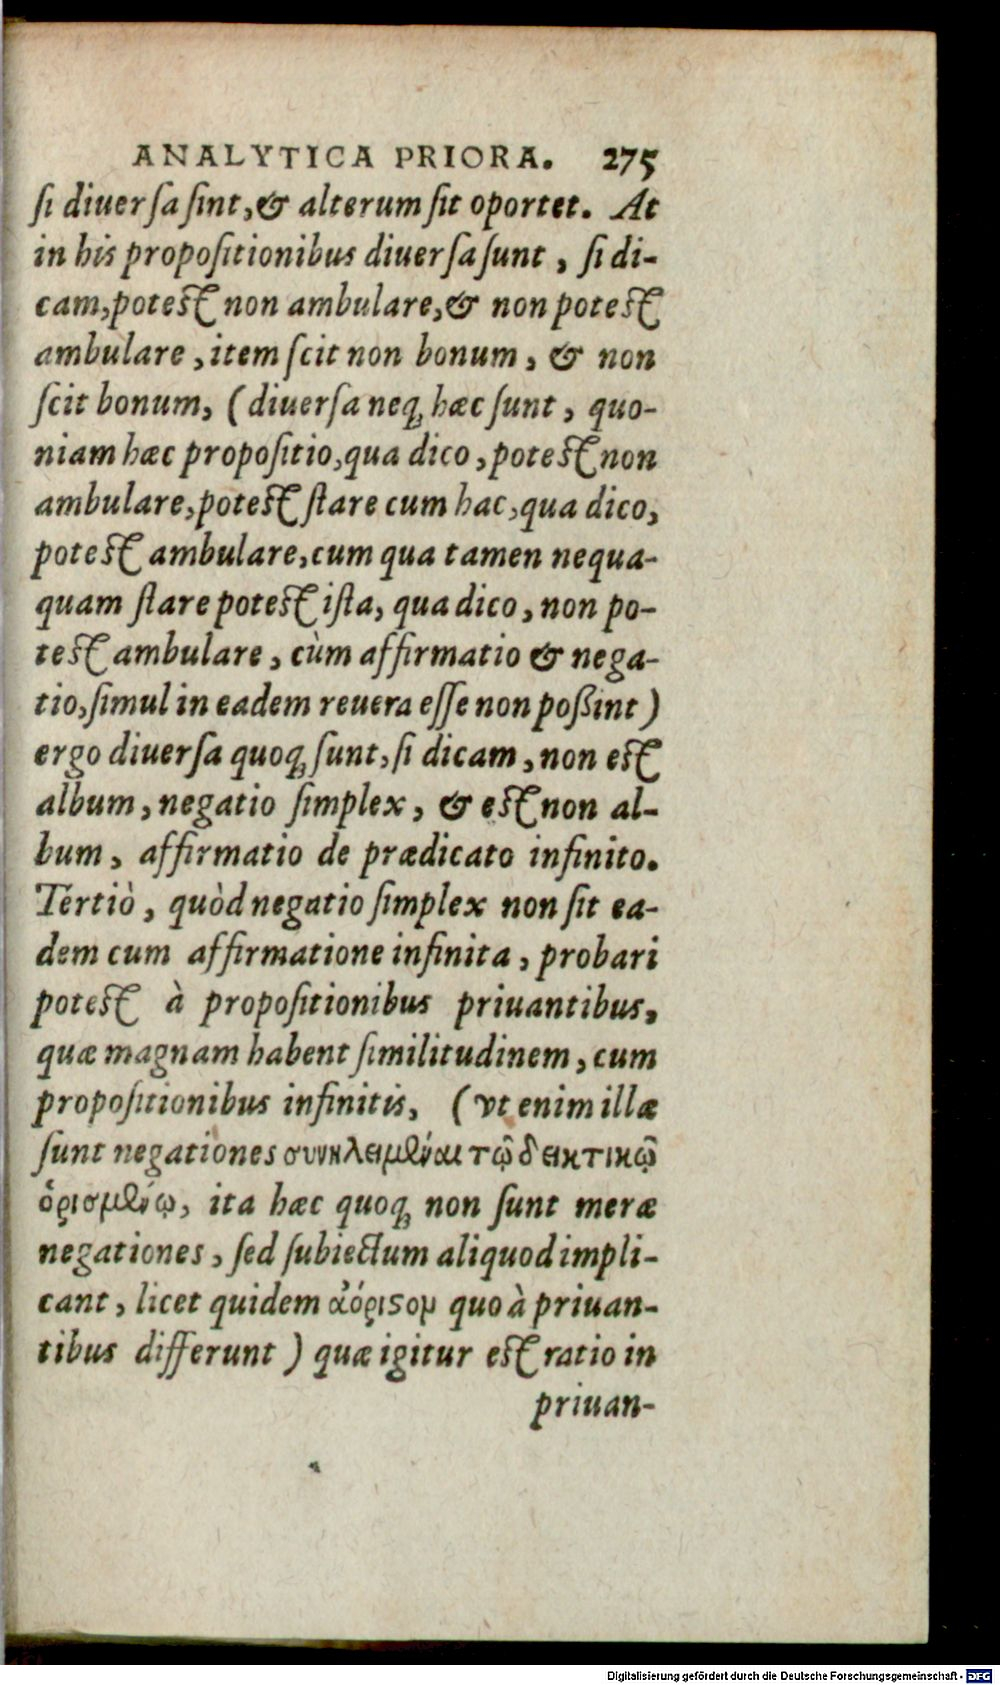 ANALYTICA PRIORA. 275
si diuersa sint, & alterum sit oportet. At
in his propositionibus diuersa sunt, si di-
cam, potest non ambulare, & non potest
ambulare, item scit non bonum, & non
scit bonum, (diuersa neq; hæc sunt, quo-
niam hæc propositio, qua dico, potest non
ambulare, potest stare cum hac, qua dico,
potest ambulare, cum qua tamen nequa-
quam stare potest ista, qua dico, non po-
test ambulare, cùm affirmatio & nega-
tio, simul in eadem reuera esse non poßint)
ergo diuersa quoq; sunt, si dicam, non est
album, negatio simplex, & est non al-
bum, affirmatio de prædicato infinito.
Tertiò, quòd negatio simplex non sit ea-
dem cum affirmatione infinita, probari
potest à propositionibus priuantibus,
quæ magnam habent similitudinem, cum
propositionibus infinitis, (vt enim illæ
sunt negationes συνκλειμέναι τῷ δεικτικῷ
ὁρισμένῳ, ita hæc quoq; non sunt meræ
negationes, sed subiectum aliquod impli-
cant, licet quidem ἀόριστον quo à priuan-
tibus differunt) quæ igitur est ratio in
priuan-
Digitalisierung gefördert durch die Deutsche Forschungsgemeinschaft - DFG